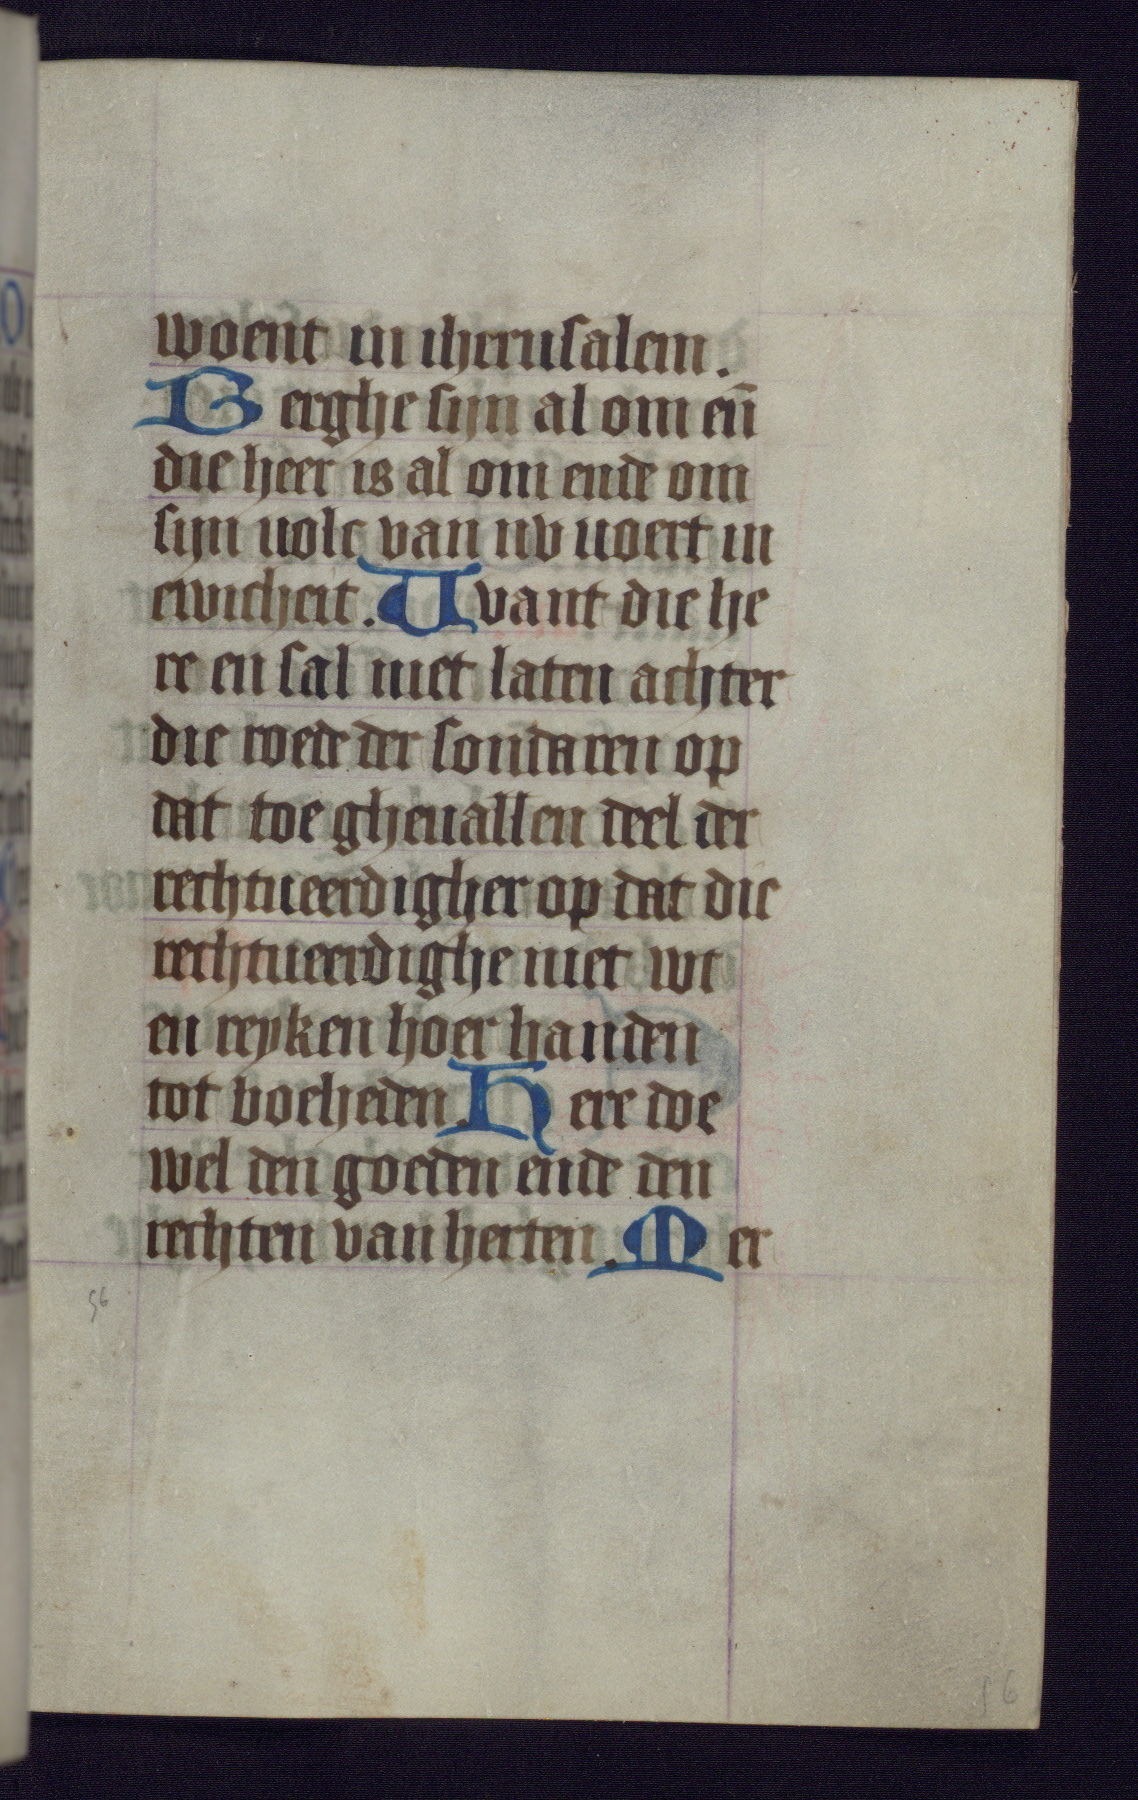 woent in iherusalem.
Berghe sijn al om en̄
die heer is al om ende om
sijn uolc van nv uoert in
ewicheit. Uvant die he
re en sal niet laten achter
die roede der sondaren op
dat toe gheuallen deel der
rechtueerdigher op dat die
rechtueerdighe niet wt
en reyken hoer handen
tot boeheden. Here doe
wel den goeden ende den
rechten van herten. Mer
56
56